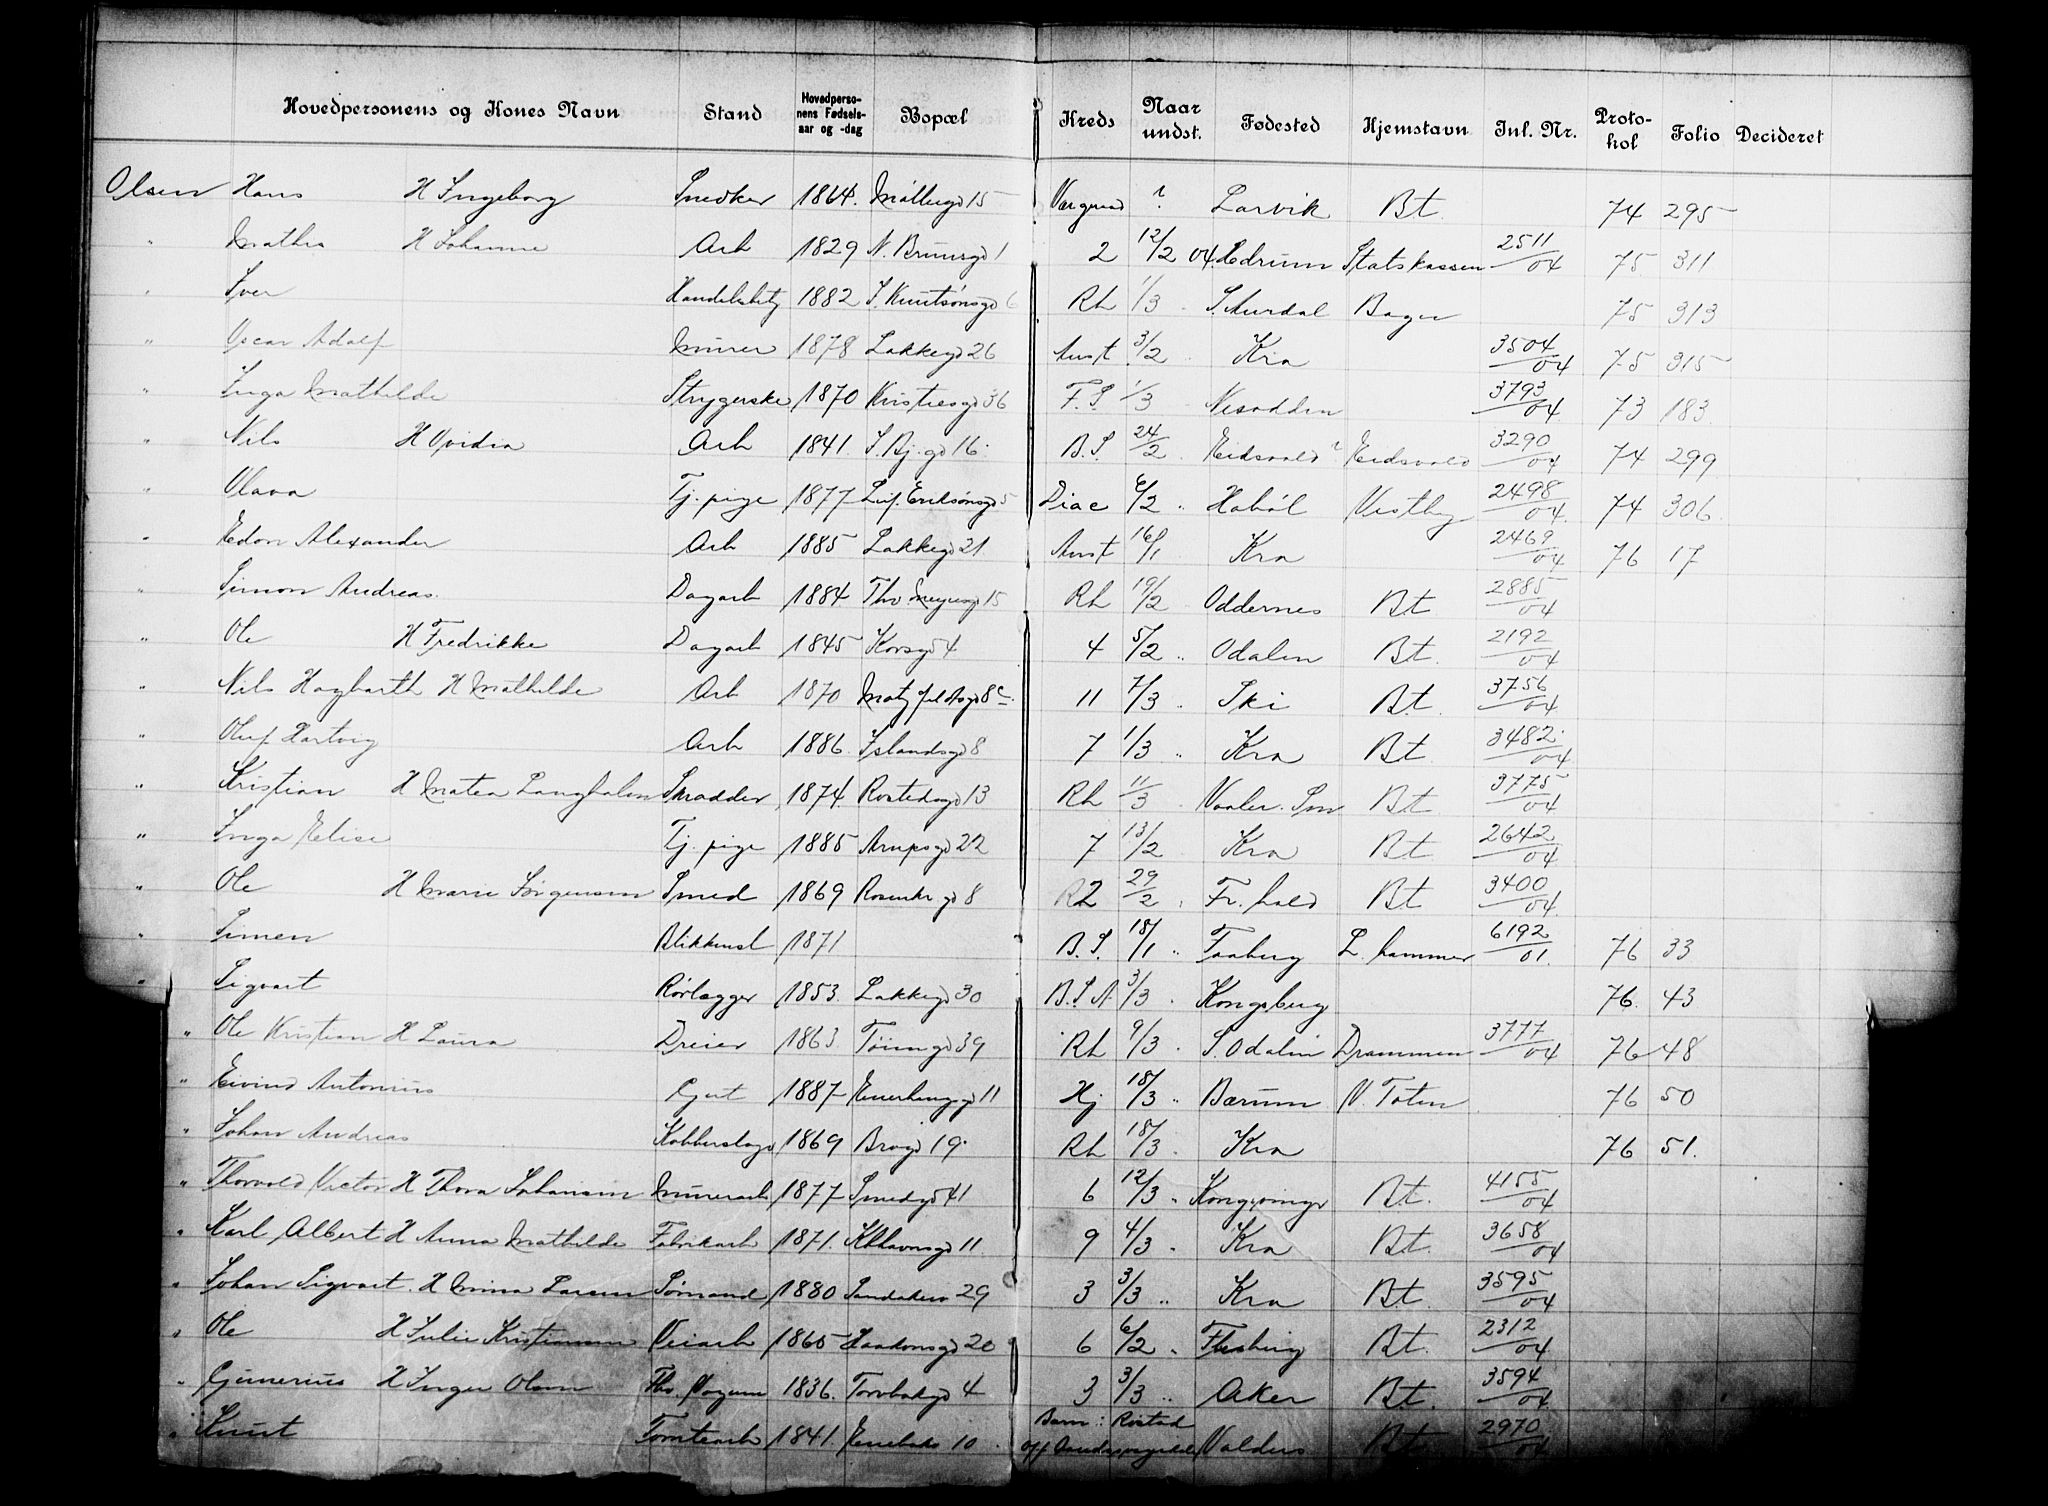 Hovedpersonens og Kones Navn Stand Hovedperso-nens Fødsels-aar og -dag Bopæl Kreds Naar undst. Fødested Hjemstavn Inl. Nr. Proto-kol Folio Decideret
Olsen Hans H Ingeborg Snedker 1864. Møllergd 15 Vaågned ? Larvik Bt. 74 295
" Mathea H Johanne Arb 1829 N. Brunsgd 1 2 12/2 04. Hedrum Statskassen 2511/04 75 311
" Iver Handelsbetj 1882 S. Knutsønsgd 6 Rh 1/3 S. Aurdal Bager 75 313
" Oscar Adolf Murer 1878 Lakkegd 26 Anst. 3/2 " Kra 3504/04 75 315
" Inga Mathilde Strygerske 1870 Kristiesgd 36 F.S. 1/3 Nesodden 3793/04 73 183.
" Nils H Ovidia Arb 1841. S. Bj. gd 16. B.S. 24/2 " Eidsvold ? Eidsvold 3290/04 74 299
" Olava Tj. pige 1877 Leif Eriksønsgd 5 Diac 6/2 " Hobøl Vestby 2498/04. 74 306.
" Edon Alexander Arb 1885 Lakkegd 21. Anst 16/1 Kra 2469/04 76 17
" Simon Andreas. Dagarb 1884 Thv Meyersgd 15 Rh 19/2 " Oddernes Bt 2885/04
" Ole H Fredrikke Dagarb 1845 Korsgd 4 4 5/2 " Odalen Bt. 2192/04
" Nils Hagbarth H Mathilde Arb 1870 8c. 11 7/3 " Ski Bt. 3756/04
" Oluf Hartvig Arb 1886. Islandsgd 8 7 1/3 " Kra Bt. 3482./04
" Kristian H Matea Langholm Skrædder 1874 Rostedsgd 13 Rh 11/3 " Vaaler. Sm Bt 3775/04
" Inga Elise Tj. pige 1885 Arupsgd 22 7 13/2 " Kra Bt 2642/04
" Ole H Marie Jørgensen Smed 1869 Rosenkr gd 8 2 29/2 " Fr. hald Bt 3400/04.
" Simen Blikkensl 1871 B.S. 18/1 " Faaberg L. hammer 6192/01. 76 33
" Sigvart Rørlægger 1853. Lakkegd 30 B.S.A. 3/3 " Kongsberg 76. 43
" Ole Kristian H Laura Dreier 1863. Tøiengd 39 Rh 9/3 " S. Odalen Drammen 3777/04 76 48
" Eivind Antonius Gjørt 1887 Enerhauggd 11 Hj 18/3 " Bærum V. Toten 76 50
" Johan Andreas Kobberslagr 1869 Brogd 19. Rh 18/3 " Kra 76 51.
" Thorvald Victor H Thora Johansen Murerarb 1877 Smedgd 41 6 12/3 " Kongsvinger Bt. 4155/04
" Karl Albert H Anna Mathilde Fabrikarb 1871. Kbhavnsgd 11. 9 4/3 " Kra Bt. 3658/04
" Johan Sigvart. H Mina Larsen Sømand 1880 Sandakerv 29 3 3/3 " Kra Bt. 3595/04
" Ole H Julie Kristiansen Veiarb 1865 Haakonsgd 20 6 6/2 " Flesberg Bt. 2312/04
" Gunerius H Inger Olsen Fhv. Vognm 1836. Torvbakgd 4 3 3/3 " Aker Bt. 3594/04
" Knut Tomtearb 1841 Enebakv 10. Barn: Rostad off Valders Bt. 2970/04